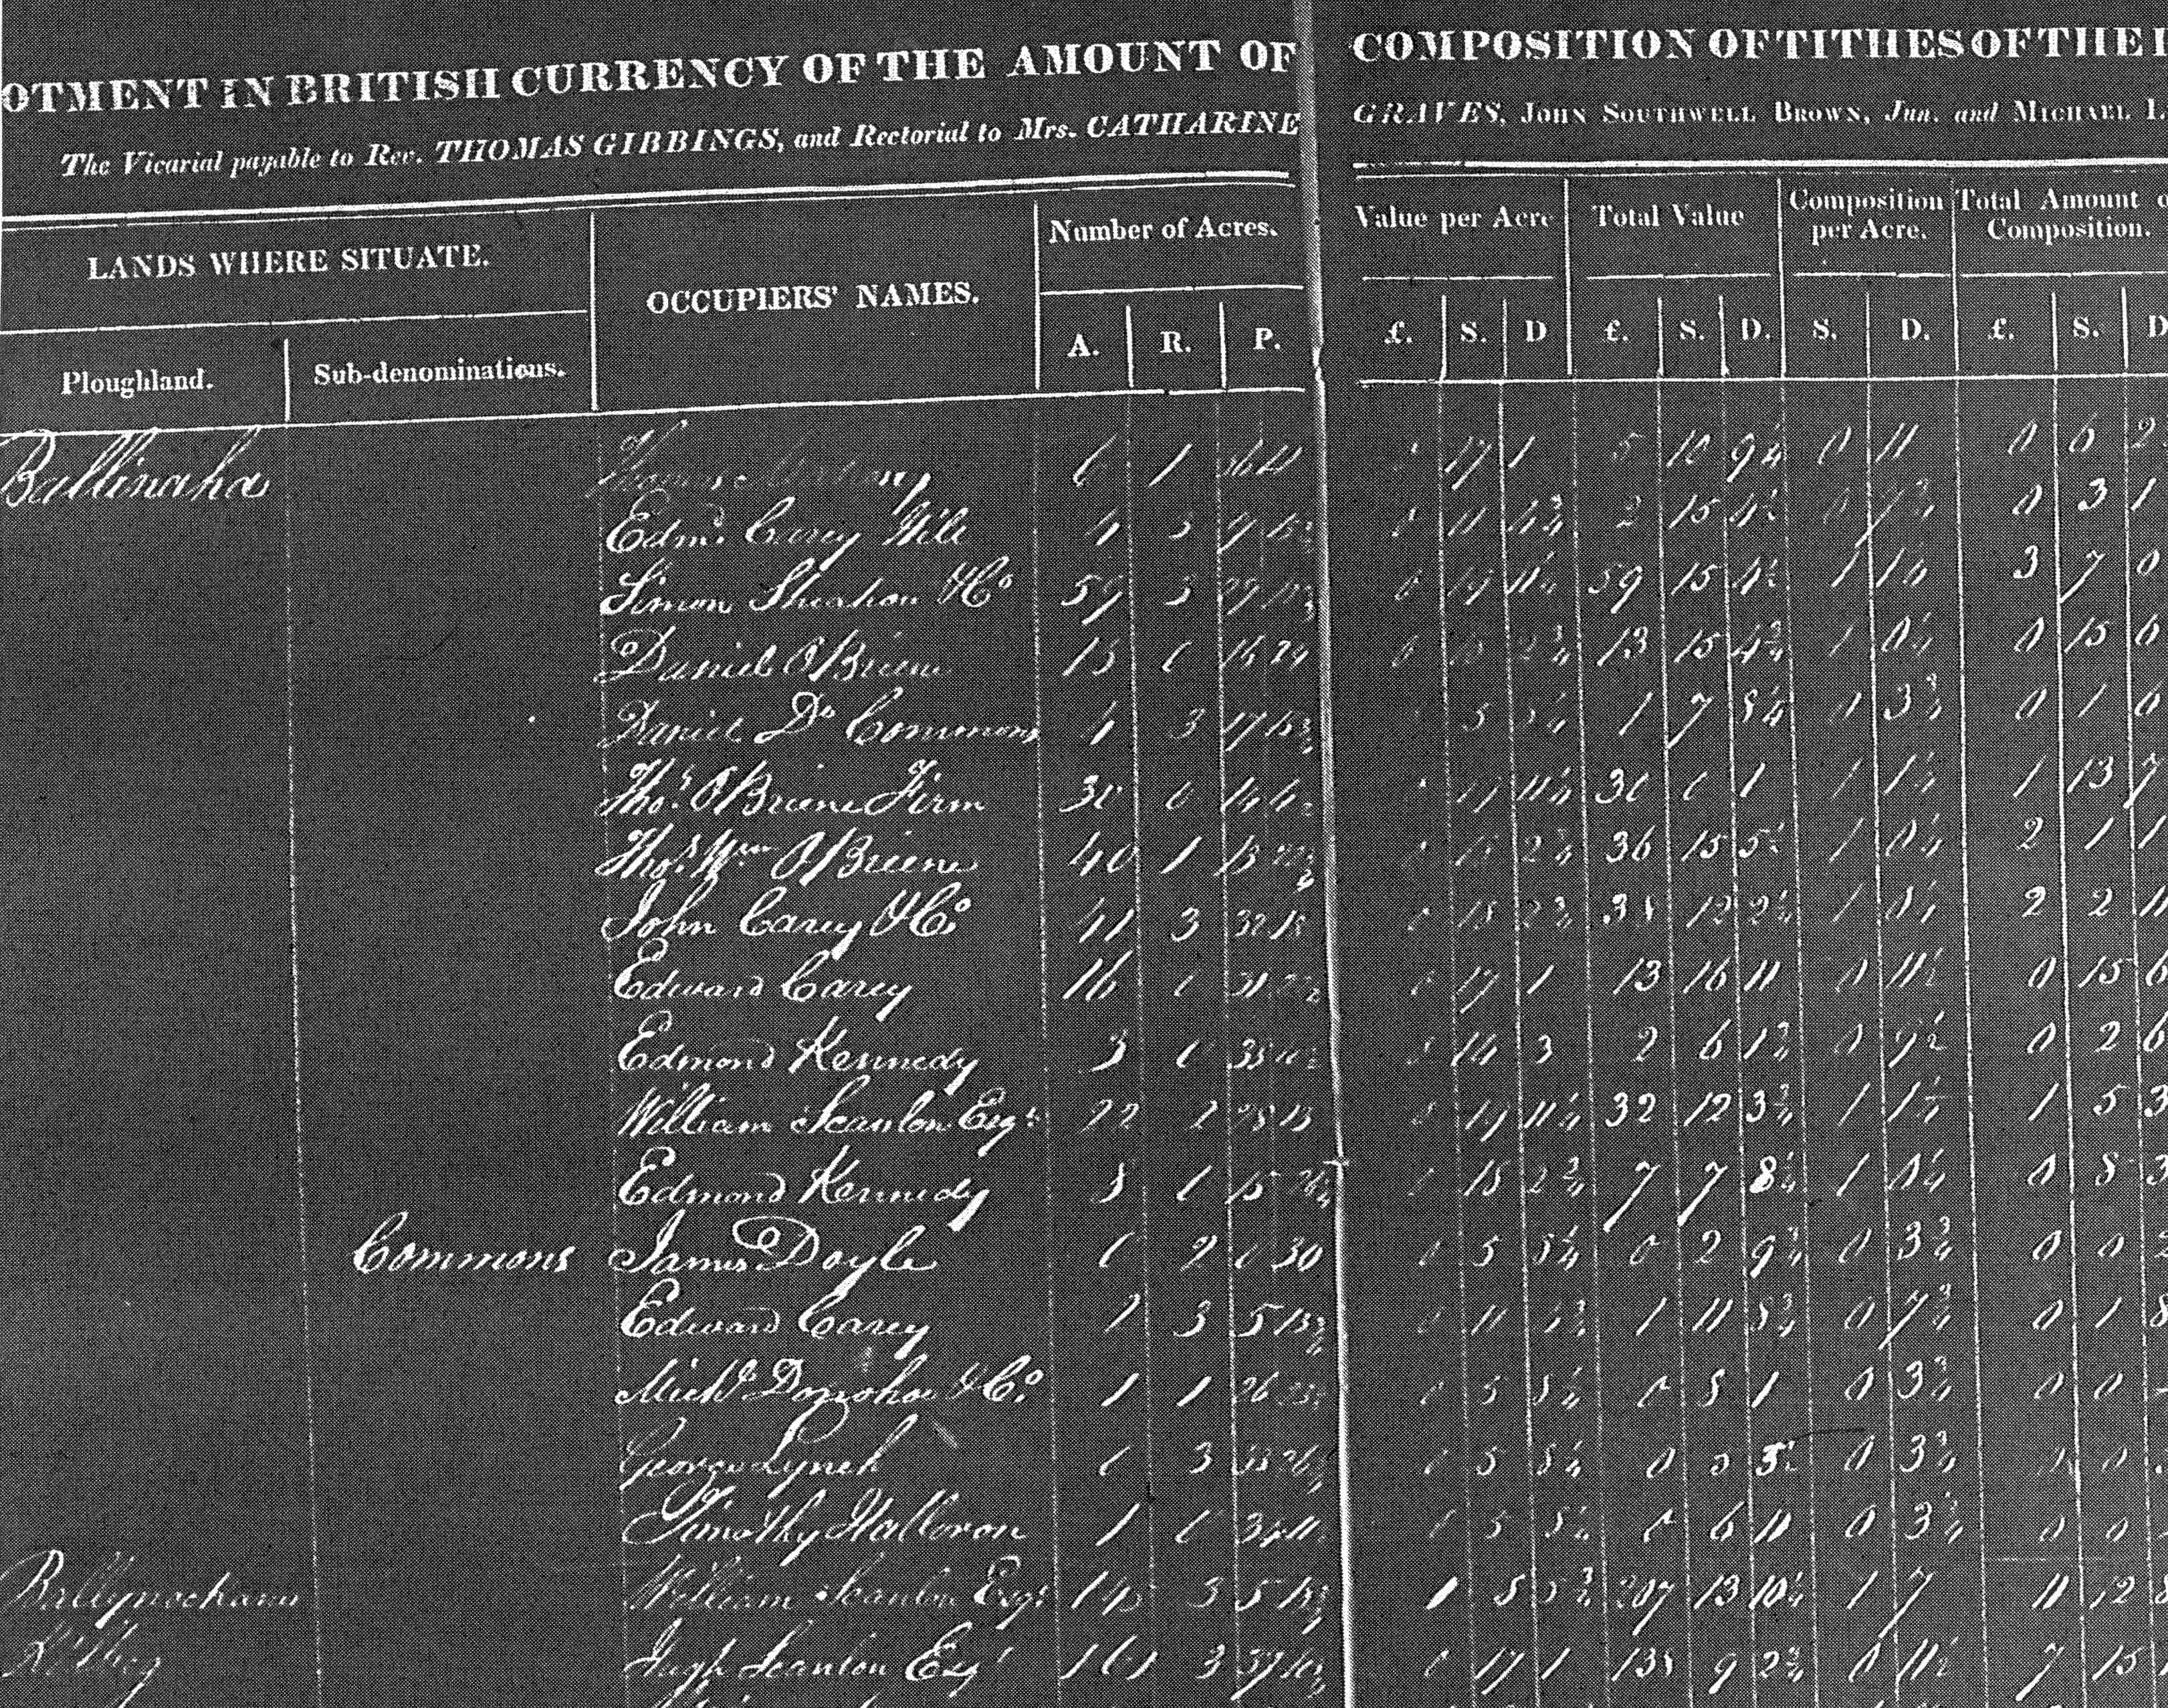 OTMENT IN BRITISH CURRENCY OF THE AMOUNT OF COMPOSITION OF TITHES OF THE
The Vicarial payable to Rev. THOMAS GIBBINGS, and Rectorial to Mrs. CATHARINE GRAVES, JOHN SOUTHWELL BROWN, Jun. and MICHAEL
LANDS WHERE SITUATE. OCCUPIERS' NAMES. Number of Acres. Value per Acre Total Value Composition per Acre. Total Amount Composition.
Ploughland. Sub-denominations. A. R. P. £. S. D £. S. D. S. D. £. S. D
Ballinaha 6 1 17 1 5 10 9¼ 0 11 0 6 2
Edmd. Carey Hill 4 3 11 4¾ 2 15 4½ 0 7¾ 0 3 1
Simon Sheahan & Co 59 3 0 19 11¼ 59 15 4½ 1 1¼ 3 7 0
Daniel O'Briene 15 0 0 18 2¾ 13 15 4¾ 1 0¼ 0 15 6
Daniel Do Commons 4 3 17 5 8¼ 1 7 8¼ 0 3¾ 0 1 0
Thos. O'Briene Firm 30 0 14 19 11¼ 30 0 1 1 1¼ 1 13 7
Thos. Wm O'Briene 40 1 18 2¾ 36 15 5½ 1 0¼ 2 1 1
John Carey & Co. 41 3 32 18 0 18 2¾ 38 12 2¼ 1 0¼ 2 2 11
Edward Carey 16 0 31 0 17 1 13 16 11 0 11½ 0 15 6
Edmond Kennedy 3 0 38 0 14 3 2 6 1¾ 0 9½ 0 2 6
William Scanlon Esqr. 0 19 11¼ 32 12 3¾ 1 1¼ 1 5 3
Edmond Kennedy 8 0 15 18 2¾ 7 7 8¼ 1 0¼ 0 8 3
Commons James Doyle 0 2 0 30 0 5 8¼ 0 2 9¾ 0 3¾ 0 0 2
Edward Carey 3 5 0 11 1 11 8¾ 0 7¾ 0 1 8
Michl. Donohoe & Co. 1 1 26 0 5 8¼ 0 8 1 0 3¾ 0 0
George Lynch 0 3 0 5 8¼ 0 0 3¾ 0
Timothy Halloron 1 0 34 11 0 5 8¼ 0 6 11 0 3¾ 0 0
William Scanlon Esqr. 145 3 5 1 8 5¾ 207 13 10¼ 1 7 11 12 8
Hugh Scanlon Esqr 161 3 0 17 1 138 9 2¾ 0 11½ 7 15